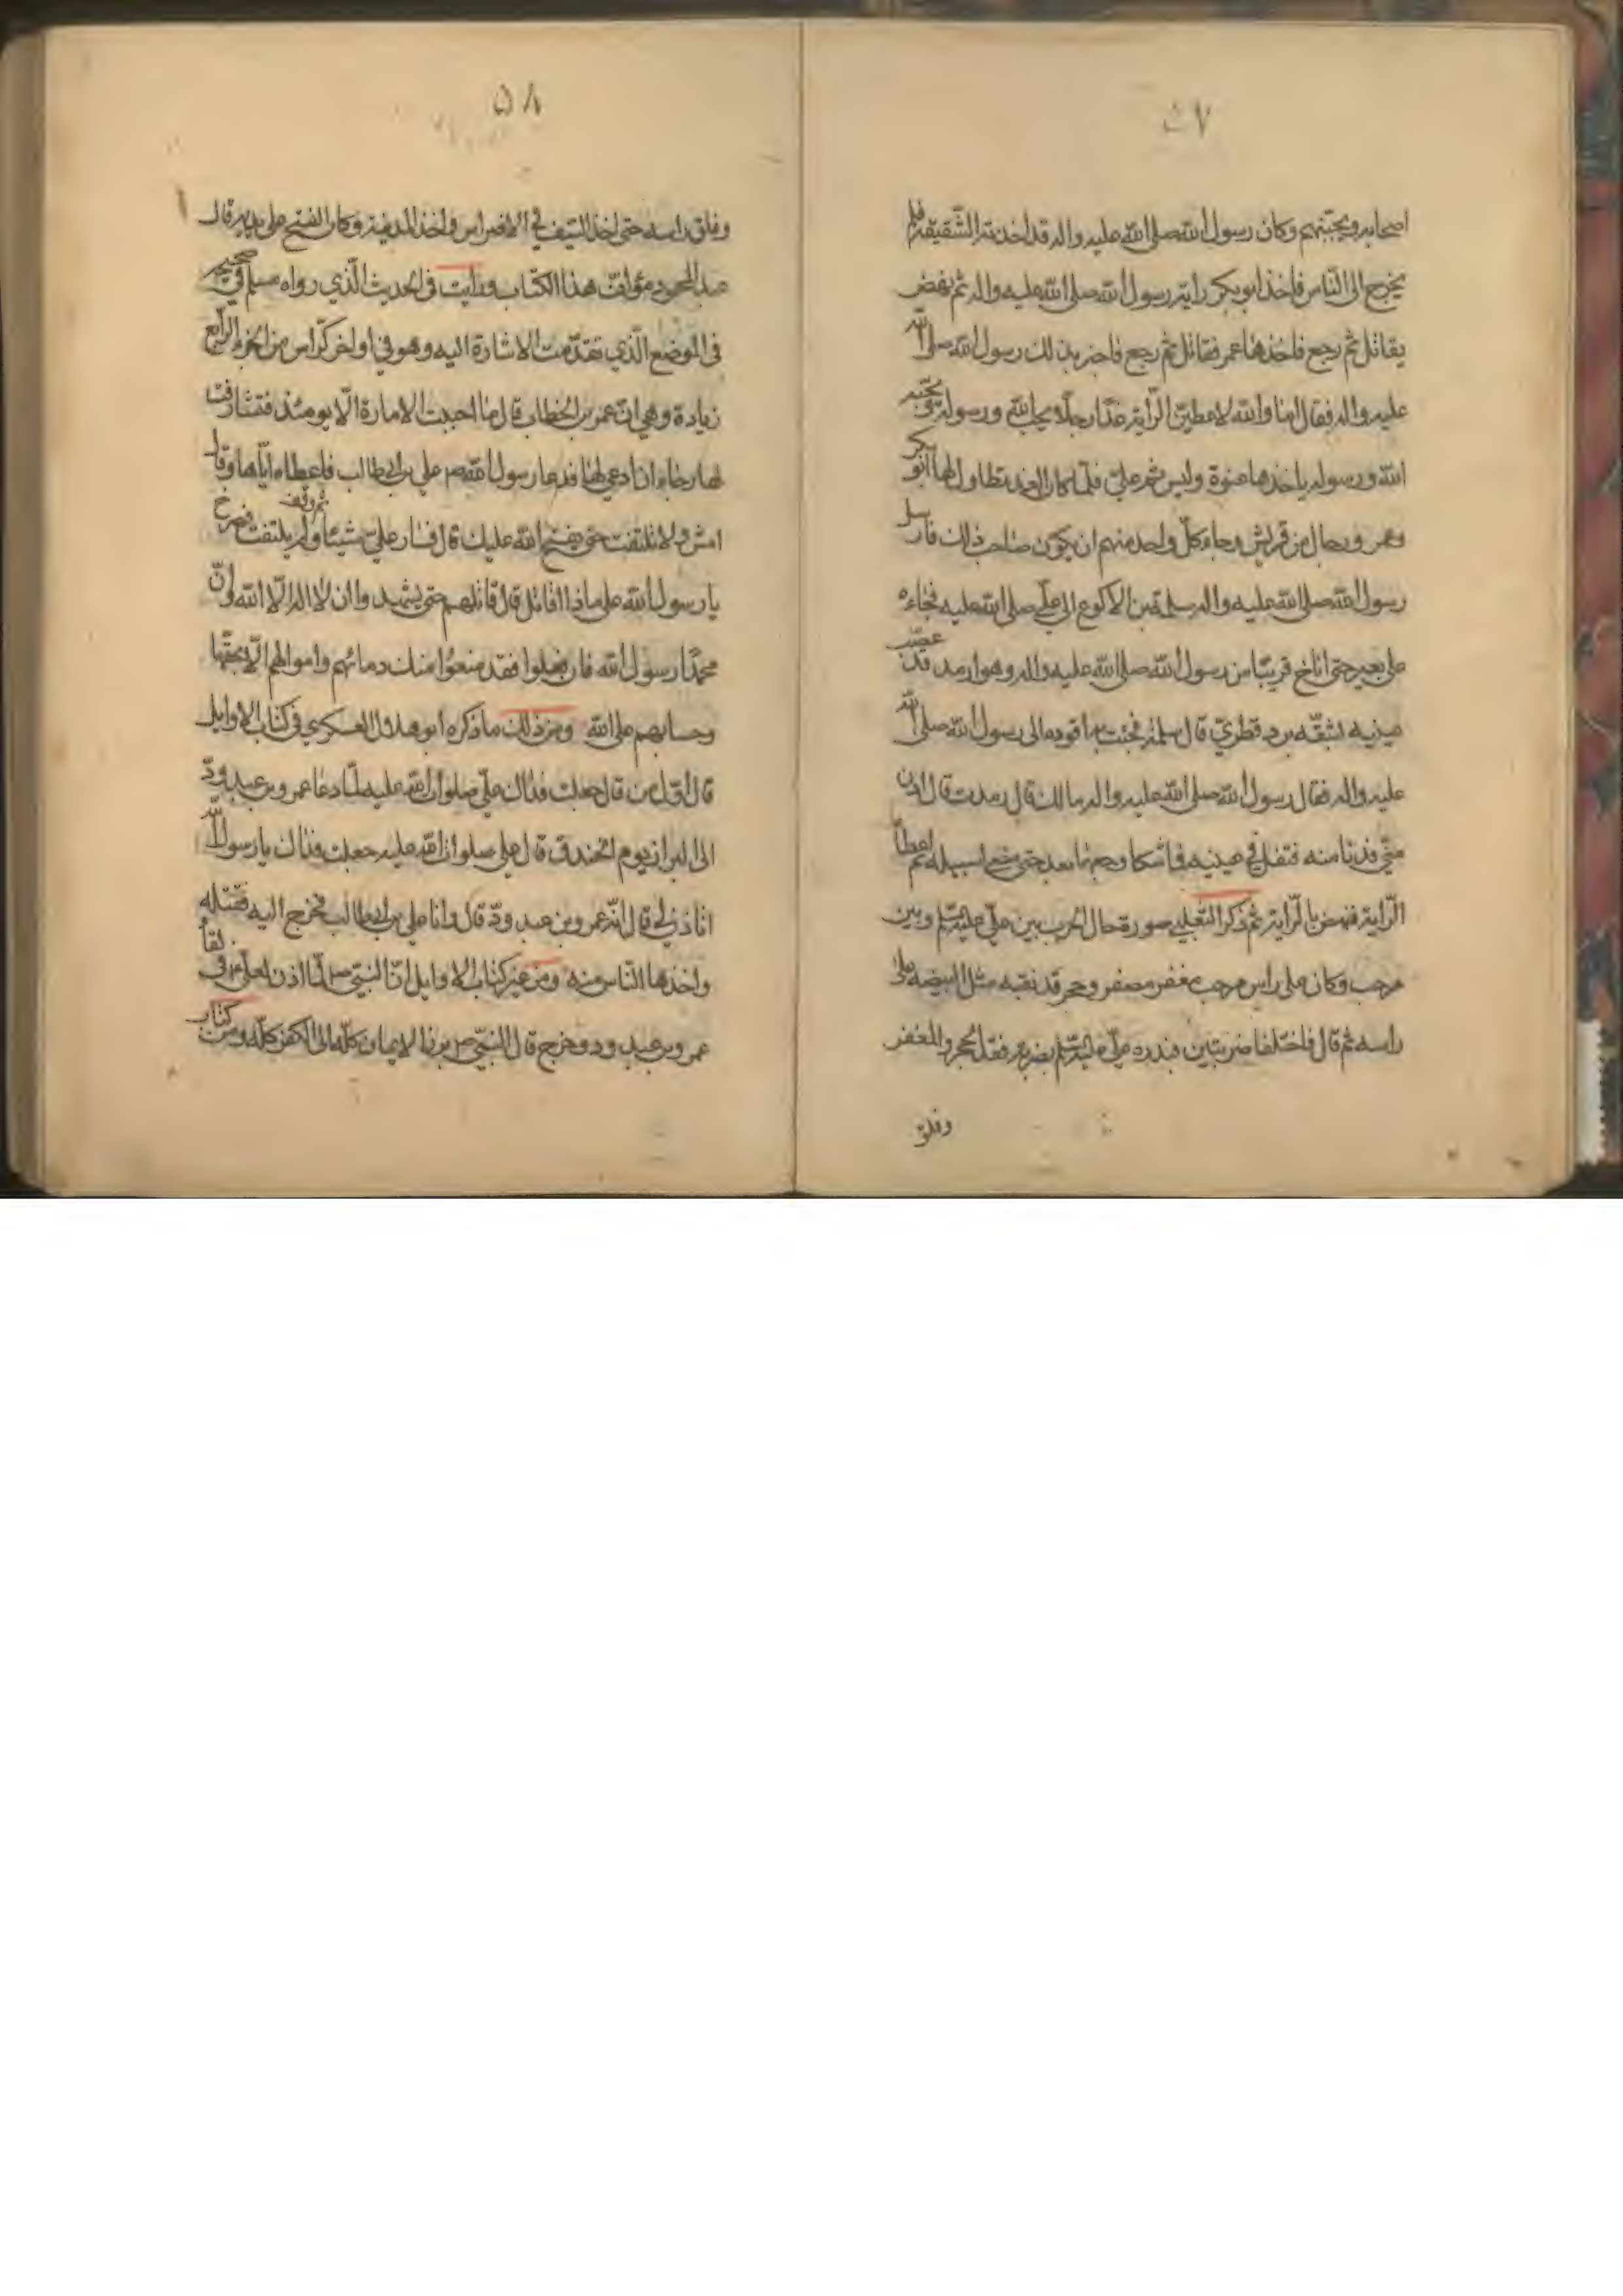 ٥٧
اصحابه ويجبّنهم وكان رسول الله صلى الله عليه واله قد اخذته الشّقيقة فلم
يخرج الى النّاس فاخذ ابو بكر راية رسول الله صلى الله عليه واله ثم نهض
يقاتل ثم رجع فاخذها عمر فقاتل ثم رجع فاخبر بذلك رسول الله صلى الله
عليه واله فقال اما والله لاعطينّ الرّاية غدا رجلا يحبّ الله ورسوله ويحبّه
الله ورسوله ياخذها عنوة وليس ثم عليّ فلمّا كان الغد تطاول لها ابو بكر
وعمر ورجال من قريش رجاء كلّ واحد منهم ان يكون صاحب ذلك فارسل
رسول الله صلى الله عليه واله سلمة بن الاكوع الى عليّ صلى الله عليه فجاءه
على بعير حتى اناخ قريبًا من رسول الله صلى الله عليه واله وهو ارمد قد عصّب
عينيه بشقّه برد قطريّ قال سلمة فجئت به اقوده الى رسول الله صلى الله
عليه واله فقال رسول الله صلى الله عليه واله مالك قال رمدت قال ادن
منّي فدنا منه فتفل في عينيه فما شكا وجعهما بعد حتى مضى لسبيله ثم اعطاه
الرّاية فنهض بالرّاية ثم ذكر الثّعلبي صورة حال الحرب بين عليّ عليه السّلم وبين
مرحب وكان على راس مرحب مغفر مصفر وحجر قد نقبه مثل البيضه على
راسه ثم قال فاختلفا ضربتين فبدره عليّ عليه السّلم بضربة فقدّ الحجر والمغفر
وفلق
٥٨
وفلق راسه حتى اخذ السّيف في الاضراس واخذ المدينة وكان الفتح على يديه قال
عبد المحمود مؤلّف هذا الكتاب ورايت في الحديث الّذي رواه مسلم في صحيحه
في الموضع الّذي تقدّمت الاشارة اليه وهو في اواخر كرّاس من الجزء الرّابع
زيادة وهي انّ عمر بن الخطاب قال ما احببت الامارة الّا يومئذ فتشارفت
لها رجاء ان ادعى لها فدعا رسول الله ص علي بن ابي طالب فاعطاه ايّاها وقال
امش ولا تلتفت حتى يفتح الله عليك قال فسار عليّ شيئا ثم وقف ولم يلتفت فصرخ
يا رسول الله على ماذا اقاتل قال قاتلهم حتى يشهدوا ان لا اله الّا الله وانّ
محمّدًا رسول الله فان فعلوا فقد منعوا منك دمائهم واموالهم الّا بحقّها
وحسابهم على الله ومن ذلك ما ذكره ابو هلال العسكري في كتاب الاوايل
قال اوّل من قال جعلت فداك عليّ صلوات الله عليه لمّا دعا عمرو بن عبد ودّ
الى البراز يوم الخندق قال علي صلوات الله عليه جعلت فداك يا رسول الله
اتاذن لي قال انّه عمرو بن عبد ودّ قال وانا علي بن ابي طالب فخرج اليه فقتله
واخذها النّاس منه ومن غير كتاب الاوايل انّ النبيّ ص لمّا اذن لعليّ في لقاء
عمرو بن عبد ود وخرج قال النبيّ ص برز الايمان كلّه الى الكفر كلّه ومن كتاب